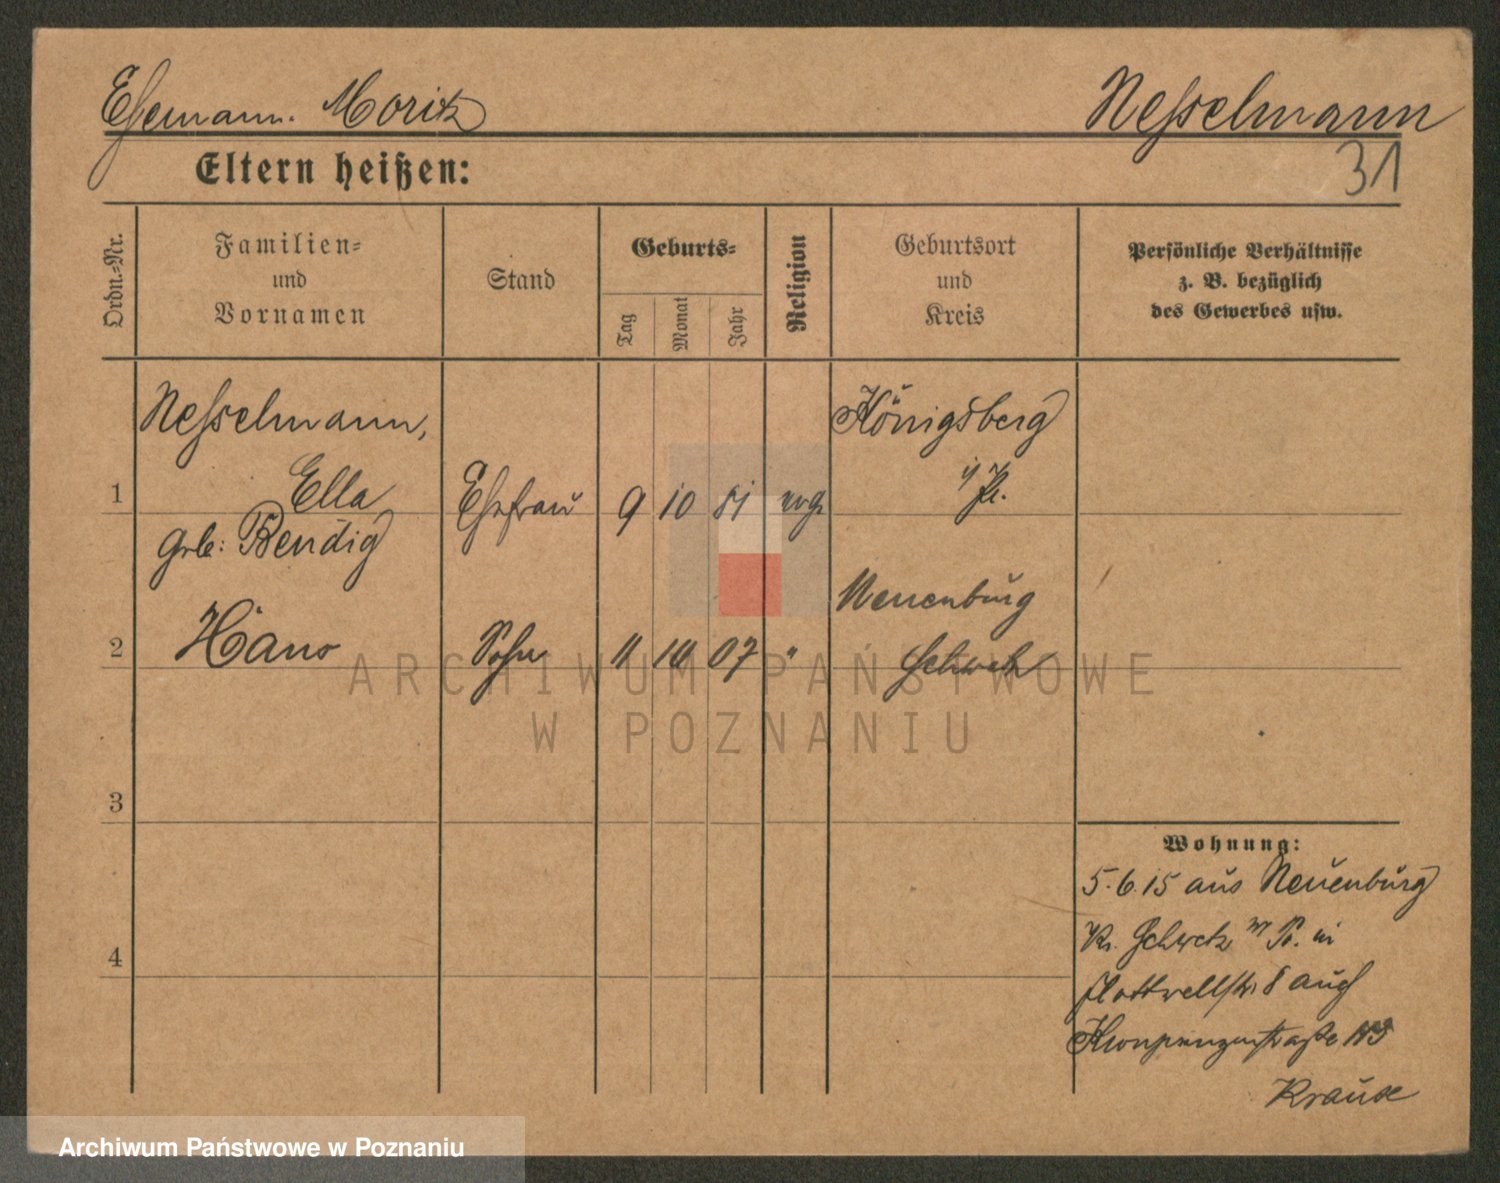 Ehemann. Moritz
Nesselmann
Eltern heißen:
31
Ordn.-Nr.
Familien-
und
Vornamen
Stand
Geburts-
Tag
Monat
Jahr
Religion
Geburtsort
und
Kreis
Persönliche Verhältnisse
z. B. bezüglich
des Gewerbes usw.
Nesselmann,
Königsberg
i/Pr.
1
Ella
Ehefrau
9
10
81
evg.
geb: Bendig
Neuenburg
2
Hans
Sohn
11
10
07
"
Schwetz
ARCHIWUM PAŃSTWOWE
W POZNANIU
3
Wohnung:
5.6.15 aus Neuenburg
Kr. Schwetz W Pr. in
4
Flottwellstr. 8 auch
Kronprinzenstraße
Krause
Archiwum Państwowe w Poznaniu